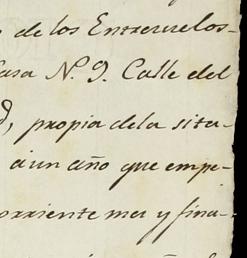 de los Entresuelos-
Casa N. 9. Calle del
d, propia dela sita-
á un año que empe-
corriente mes y fina-